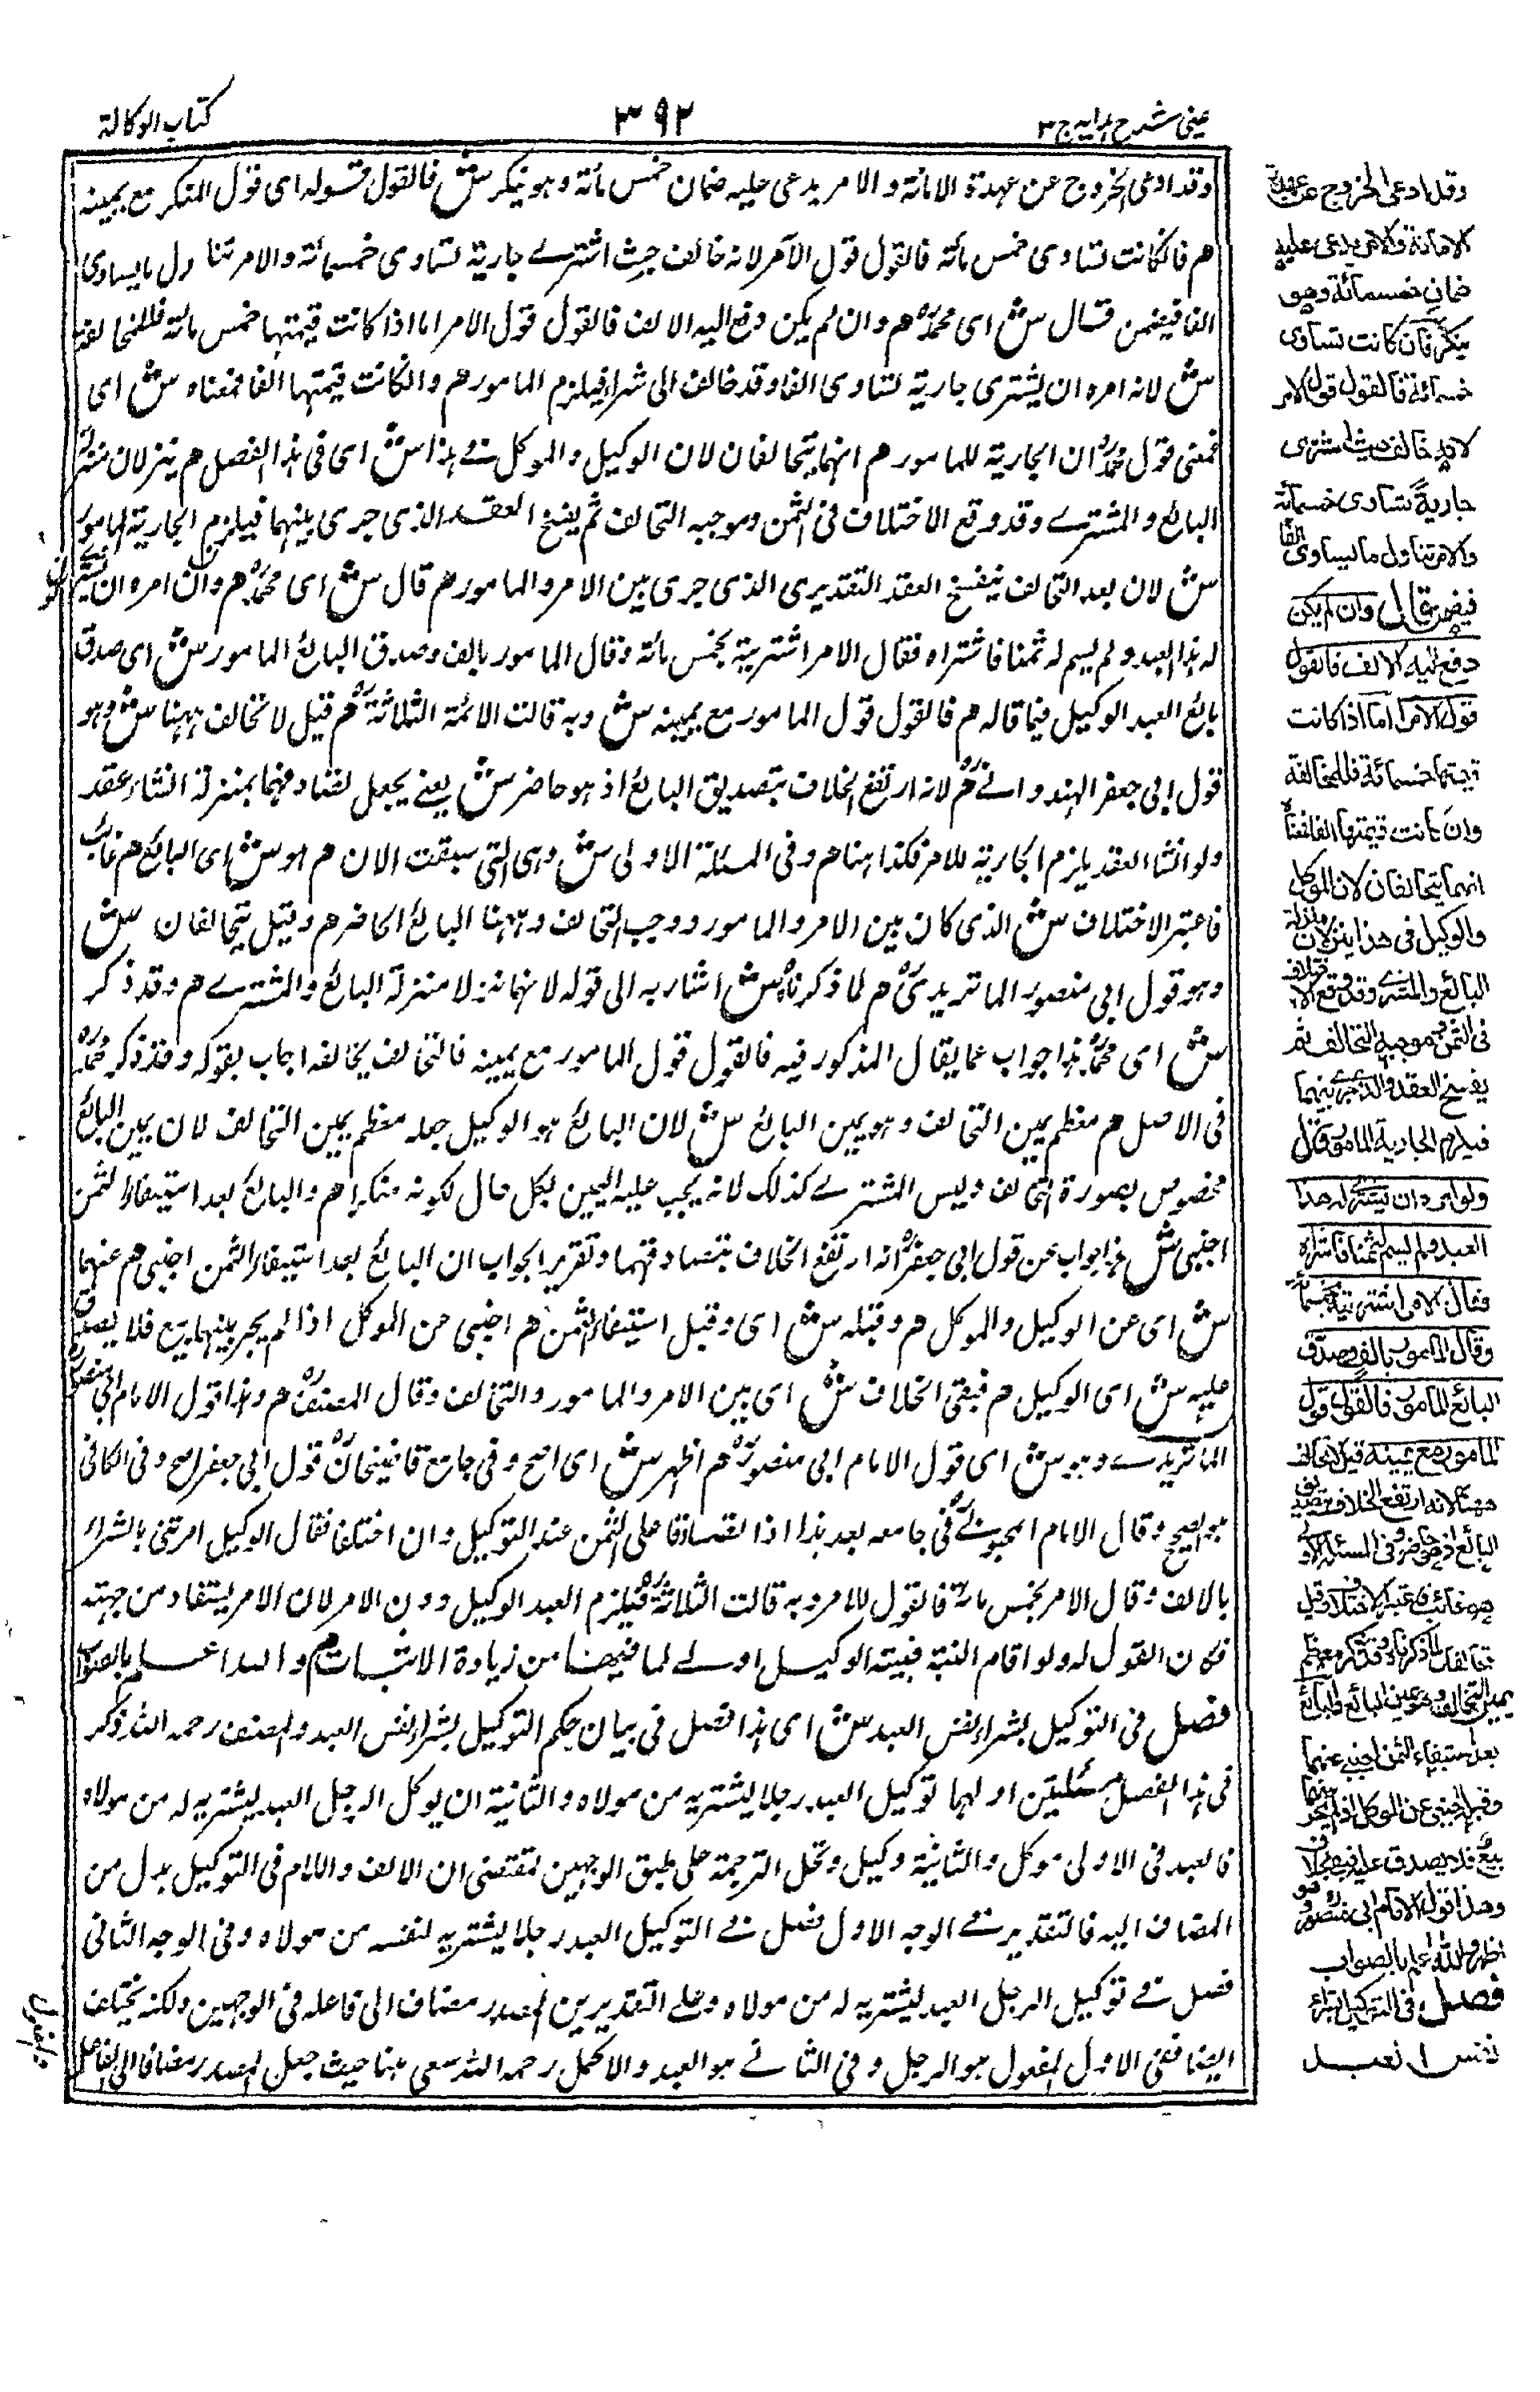 عینی شرح ہدایہ ج ۳
۳۹۲
كتاب الوكالة
وقد ادعى الخروج عن عهدة الامانة والامر يدعى عليه ضمان خمس مائة وهو ينكر ش فالقول قوله اى قول المنكر مع يمينه
هم فان كانت تساوى خمس مائة فالقول قول الآمر لانه خالف حيث اشترى جارية تساوى خمسمائة والامر تناول ما يساوى
الفا فيضمن قال ش اى محمدؒ هم وان لم يكن دفع اليه الالف فالقول قول الامر اما اذا كانت قيمتها خمس مائة فللمخالفة
ش لانه امره ان يشترى جارية تساوى الفا وقد خالف الى شراء فيلزم المامور هم وان كانت قيمتها الفا فمعناه ش اى
فمعنى قول محمدؒ ان الجارية للمامور هم انهما يتحالفان لان الوكيل والموكل فى هذا ش اى فى هذا الفصل هم ينزلان منزلة
البائع والمشترى وقد وقع الاختلاف فى الثمن وموجبه التحالف ثم يفسخ العقد الذى جرى بينهما فيلزم الجارية المامور
ش لان بعد التحالف ينفسخ العقد التقديرى الذى جرى بين الامر والمامور هم قال ش اى محمدؒ هم وان امره ان يشترى
له هذا العبد ولم يسم له ثمنا فاشتراه فقال الامر اشتريته بخمس مائة وقال المامور بالف وصدق البائع المامور ش اى صدق
بائع العبد الوكيل فيما قاله هم فالقول قول المامور مع يمينه ش وبه قالت الائمة الثلاثةؒ هم قيل لا تخالف ههنا ش وهو
قول ابى جعفر الهندوانىؒ هم لانه ارتفع الخلاف بتصديق البائع اذ هو حاضر ش يعنى يجعل تصادقهما بمنزلة انشاء عقد
ولو انشا العقد يلزم الجارية للامر فكذا ههنا هم وفى المسئلة الاولى ش وهى التى سبقت الان هم هو ش اى البائع هم غائب
فاعتبر الاختلاف ش الذى كان بين الامر والمامور ووجب التحالف وههنا البائع الحاضر هم وقيل يتحالفان ش
وهو قول ابى منصور الماتريدىؒ هم لما ذكرناه ش اشار به الى قوله لانهما نزلا منزلة البائع والمشترى هم وقد ذكر
ش اى محمدؒ هذا جواب عما يقال المذكور فيه فالقول قول المامور مع يمينه فالتحالف يخالفه اجاب بقوله وقد ذكر محمدؒ
فى الاصل هم معظم يمين التحالف وهو يمين البائع ش لان البائع هو الوكيل جعله معظم يمين التحالف لان يمين البائع
مخصوص بصورة التحالف وليس المشترى كذلك لانه يجب عليه اليمين بكل حال لكونه منكرا هم والبائع بعد استيفاء الثمن
اجنبى ش هذا جواب عن قول ابى جعفرؒ انه ارتفع الخلاف بتصادقهما وتقرير الجواب ان البائع بعد استيفاء الثمن اجنبى هم عنهما
ش اى عن الوكيل والموكل هم وقبله ش اى وقبل استيفاء الثمن هم اجنبى عن الموكل اذا لم يجر بينهما بيع فلا يصدق
عليه ش اى الوكيل هم فبقى الخلاف ش اى بين الامر والمامور والتخالف وقال المصنفؒ هم وهذا قول الامام ابى منصور
الماتريدى وهو ش اى قول الامام ابى منصورؒ هم اظهر ش اى اصح وفى جامع قاضيخانؒ قول ابى جعفر اصح وفى الكافى
هو الصحيح وقال الامام المحبوبىؒ فى جامعه بعد هذا اذا تصادقا على الثمن عند التوكيل وان اختلفا فقال الوكيل امرتنى بالشراء
بالالف وقال الامر بخمس مائة فالقول للامر وبه قالت الثلاثةؒ فيلزم العبد الوكيل دون الامر لان الامر يستفاد من جهته
فكان القول له ولو اقام البينة فبينة الوكيل اولى لما فيها من زيادة الاثبات هم والله اعلم بالصواب
فصل فى التوكيل بشراء نفس العبد ش اى هذا فصل فى بيان حكم التوكيل بشراء نفس العبد والمصنف رحمه الله ذكر
فى هذا الفصل مسئلتين اولهما توكيل العبد رجلا يشتريه من مولاه والثانية ان يوكل الرجل العبد ليشتريه له من مولاه
فالعبد فى الاولى موكل والثانية وكيل وتحل الترجمة على طبق الوجهين مقتضى ان الالف واللام فى التوكيل بدل من
المضاف اليه فالتقدير فى الوجه الاول فصل فى التوكيل العبد رجلا يشتريه لنفسه من مولاه وفى الوجه الثانى
فصل فى توكيل الرجل العبد ليشتريه له من مولاه وعلى التقديرين المصدر مضاف الى فاعله فى الوجهين ولكنه يختلف
ايضا ففى الاول المفعول هو الرجل وفى الثانى هو العبد والاكمل رحمه الله سعى هنا حيث جعل المصدر مضافا الى الفاعل
وقد ادعى الخروج عن عهدة
الامانة والامر يدعى عليه
ضمان خمسمائة وهو
ينكر فان كانت تساوى
خمسمائة فالقول قول الامر
لانه خالف حيث اشترى
جارية تساوى خمسمائة
والامر تناول ما يساوى الفا
فيضمن قال وان لم يكن
دفع اليه الالف فالقول
قول الامر اما اذا كانت
قيمتها خمسمائة فللمخالفة
وان كانت قيمتها الفا فمعناه
انهما يتحالفان لان الموكل
والوكيل فى هذا ينزلان منزلة
البائع والمشترى وقد وقع الاختلاف
فى الثمن وموجبه التحالف ثم
يفسخ العقد الذى جرى بينهما
فيلزم الجارية المامور قال
ولو امره ان يشترى له هذا
العبد ولم يسم له ثمنا فاشتراه
فقال الامر اشتريته بخمسمائة
وقال المامور بالف وصدق
البائع المامور فالقول قول
المامور مع يمينه قيل لا تحالف
ههنا لانه ارتفع الخلاف بتصديق
البائع اذ هو حاضر وفى المسئلة الاولى
هو غائب فاعتبر الاختلاف وقيل
يتحالفان لما ذكرناه وقد ذكر معظم
يمين التحالف وهو يمين البائع والبائع
بعد استيفاء الثمن اجنبى عنهما
وقبله اجنبى عن الموكل اذ لم يجر بينهما
بيع فلا يصدق عليه فبقى الخلاف
وهذا قول الامام ابى منصورؒ وهو
اظهر والله اعلم بالصواب
فصل فى التوكيل بشراء
نفس العبد